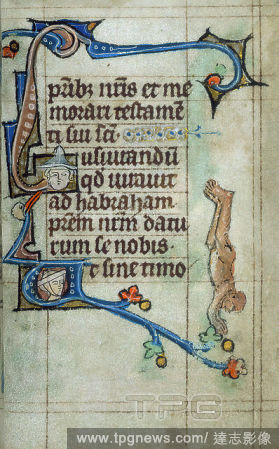 prib; nris et me
morari testamē
ti sui sc̄i.
usiurandū
qd̄ iurauit
ad habraham
prēm nrm̄ datu
rum se nobis.
t sine timo
TPG
www.tpgnews.com/達志影像